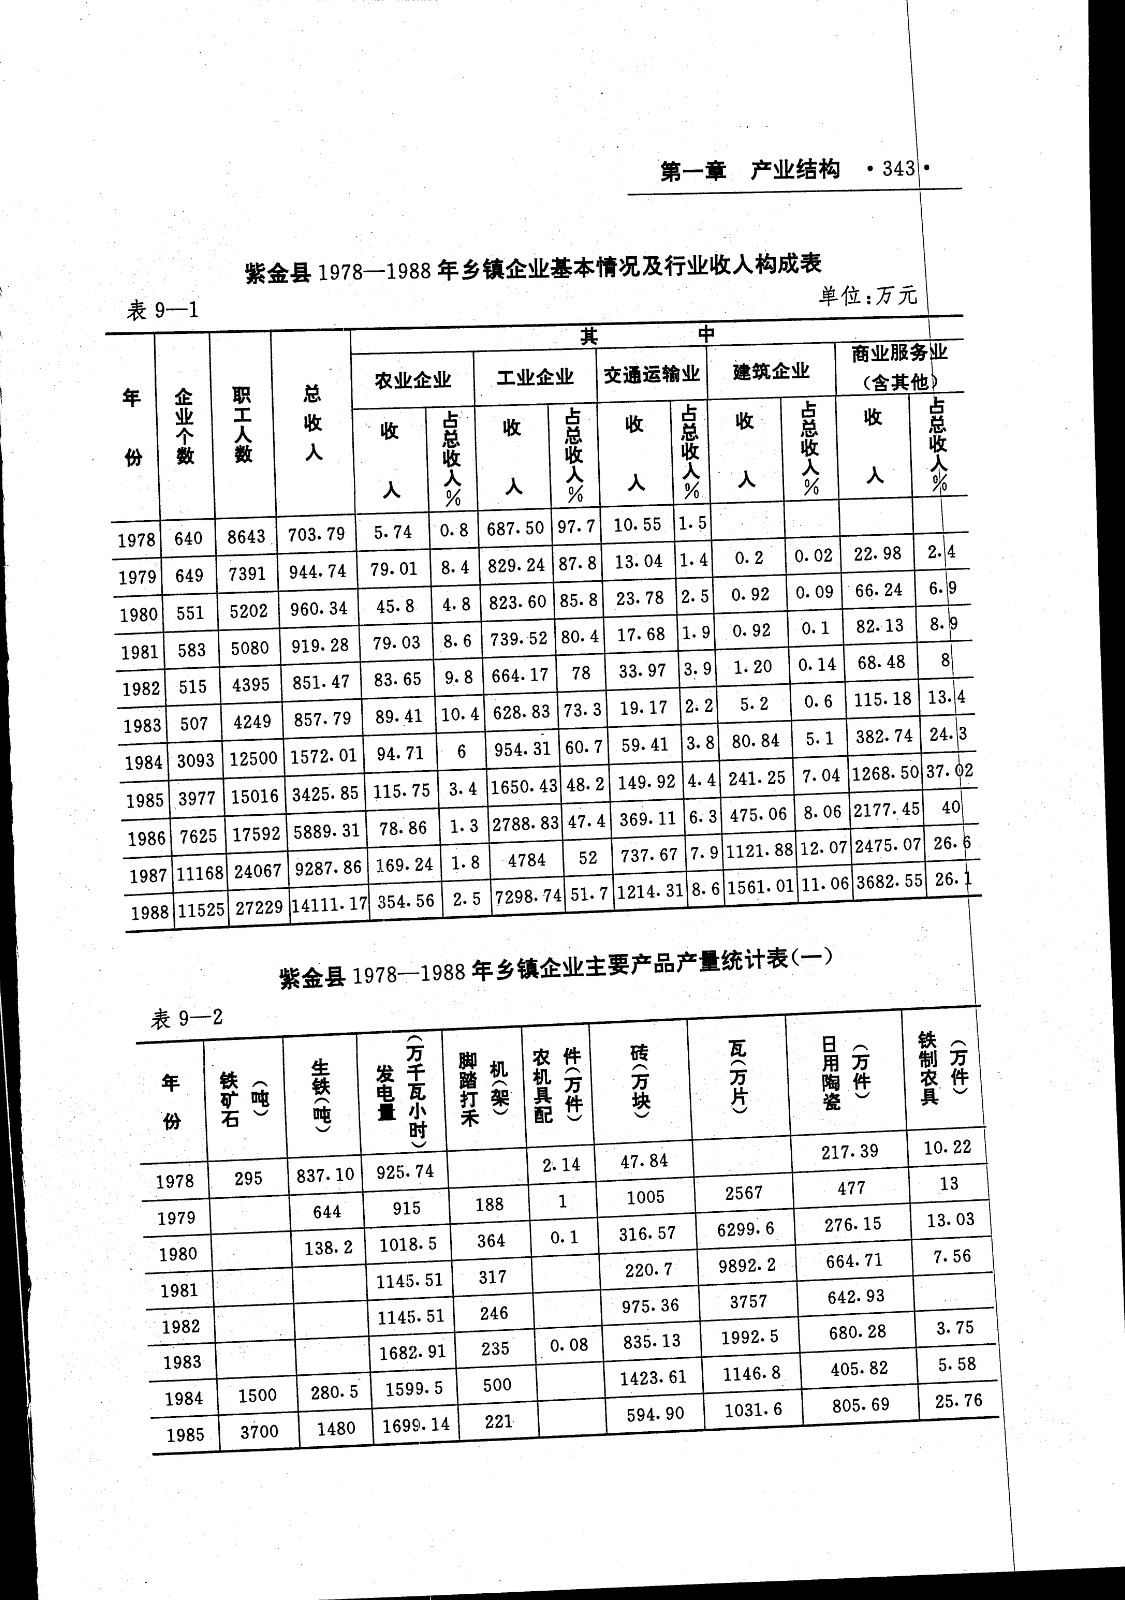 第一章 产业结构 ·343·
紫金县1978—1988年乡镇企业基本情况及行业收入构成表
表9—1 单位:万元
年份 企业个数 职工人数 总收入 其中
农业企业 工业企业 交通运输业 建筑企业 商业服务业(含其他)
收入 占总收入% 收入 占总收入% 收入 占总收入% 收入 占总收入% 收入 占总收入%
1978 640 8643 703.79 5.74 0.8 687.50 97.7 10.55 1.5
1979 649 7391 944.74 79.01 8.4 829.24 87.8 13.04 1.4 0.2 0.02 22.98 2.4
1980 551 5202 960.34 45.8 4.8 823.60 85.8 23.78 2.5 0.92 0.09 66.24 6.9
1981 583 5080 919.28 79.03 8.6 739.52 80.4 17.68 1.9 0.92 0.1 82.13 8.9
1982 515 4395 851.47 83.65 9.8 664.17 78 33.97 3.9 1.20 0.14 68.48 8
1983 507 4249 857.79 89.41 10.4 628.83 73.3 19.17 2.2 5.2 0.6 115.18 13.4
1984 3093 12500 1572.01 94.71 6 954.31 60.7 59.41 3.8 80.84 5.1 382.74 24.3
1985 3977 15016 3425.85 115.75 3.4 1650.43 48.2 149.92 4.4 241.25 7.04 1268.50 37.02
1986 7625 17592 5889.31 78.86 1.3 2788.83 47.4 369.11 6.3 475.06 8.06 2177.45 40
1987 11168 24067 9287.86 169.24 1.8 4784 52 737.67 7.9 1121.88 12.07 2475.07 26.6
1988 11525 27229 14111.17 354.56 2.5 7298.74 51.7 1214.31 8.6 1561.01 11.06 3682.55 26.1
紫金县1978—1988年乡镇企业主要产品产量统计表(一)
表9—2
年份 铁矿石(吨) 生铁(吨) 发电量(万千瓦小时) 脚踏打禾机(架) 农机具配件(万件) 砖(万块) 瓦(万片) 日用陶瓷(万件) 铁制农具(万件)
1978 295 837.10 925.74 2.14 47.84 217.39 10.22
1979 644 915 188 1 1005 2567 477 13
1980 138.2 1018.5 364 0.1 316.57 6299.6 276.15 13.03
1981 1145.51 317 220.7 9892.2 664.71 7.56
1982 1145.51 246 975.36 3757 642.93
1983 1682.91 235 0.08 835.13 1992.5 680.28 3.75
1984 1500 280.5 1599.5 500 1423.61 1146.8 405.82 5.58
1985 3700 1480 1699.14 221 594.90 1031.6 805.69 25.76